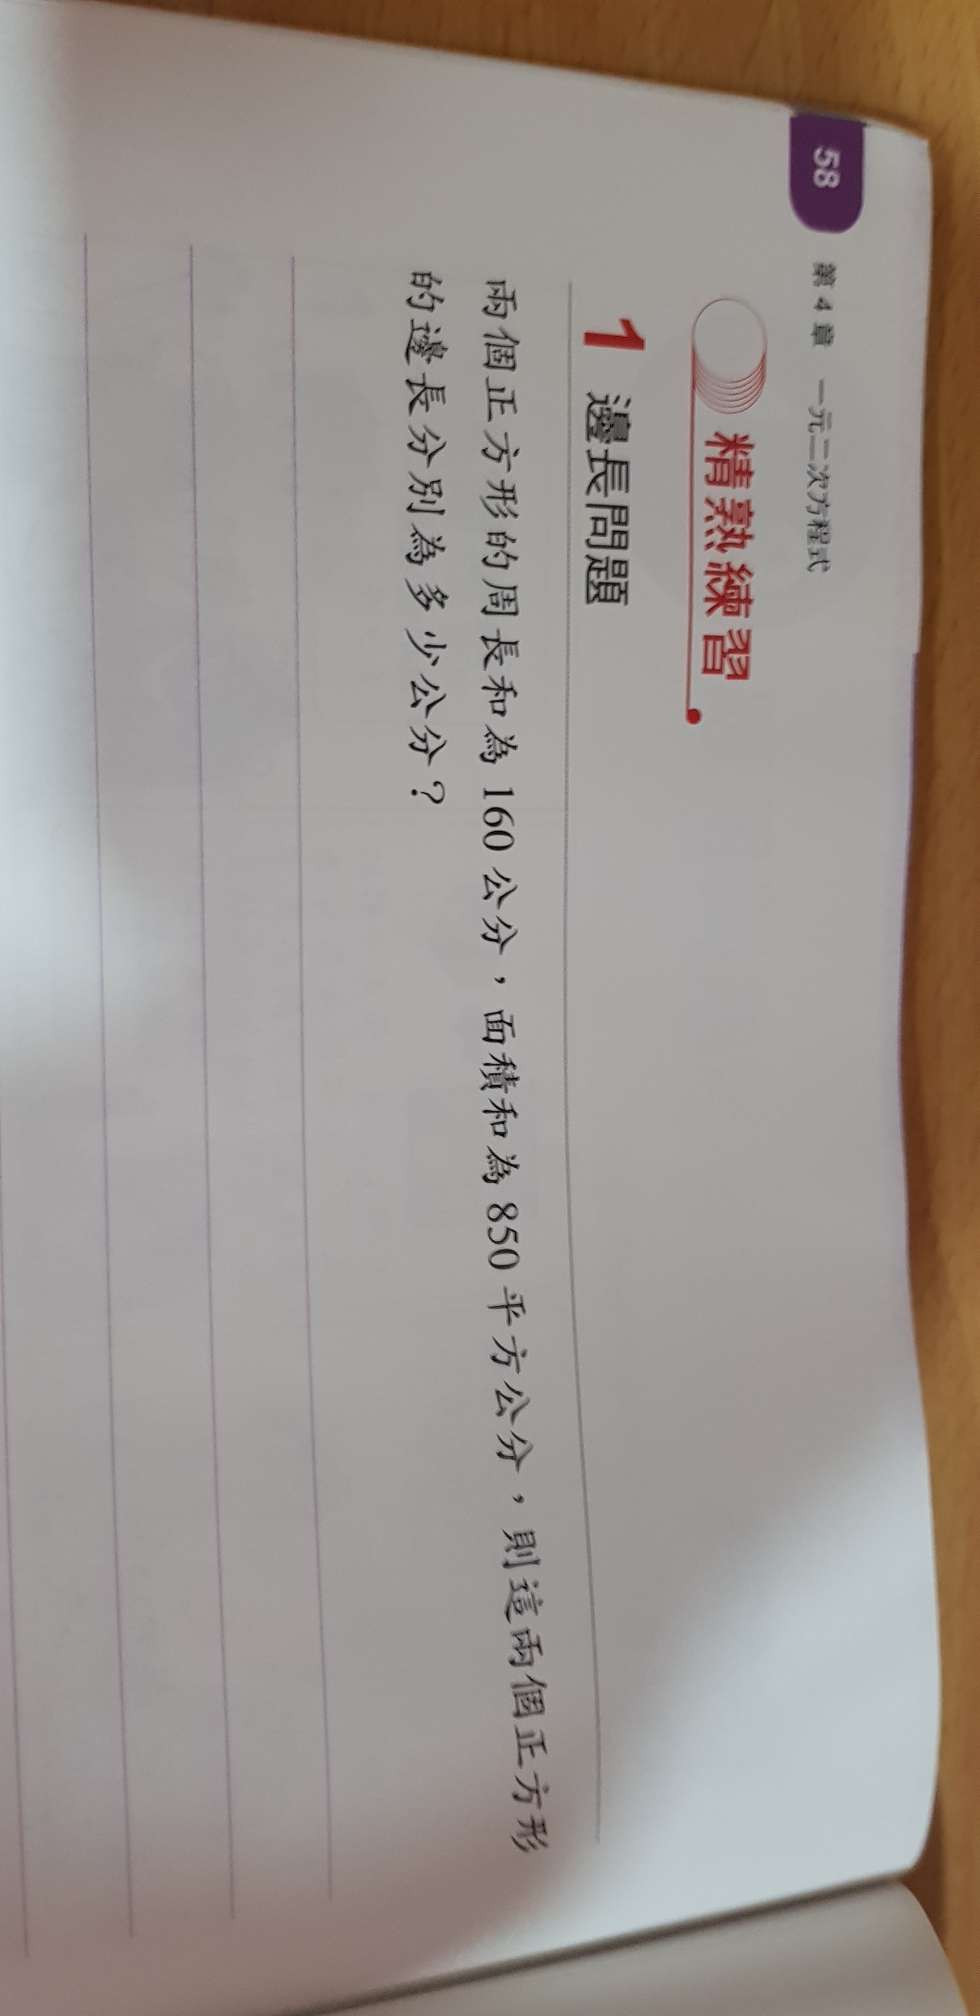 58 第4章 一元二次方程式
精熟練習
1 邊長問題
兩個正方形的周長和為160公分，面積和為850平方公分，則這兩個正方形
的邊長分別為多少公分？